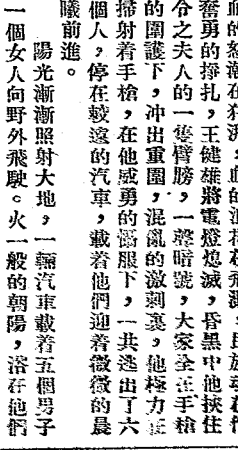 血的怒潮在狂湃，血的浪花在飛濺，民族
奮勇的掙扎，王健雄將電燈熄滅，昏黑中他挾住
合之夫人的一隻臂膀，一聲暗號，大家全在手槍
的圍護下，冲出重圍，混亂的激刺裏，他極力在
掃射着手槍，在他威勇的懾服下，一共逃出了六
個人，停在較遠的汽車，載着他們迎着微微的晨
曦前進。
陽光漸漸照射大地，一輛汽車載着五個男子
一個女人向野外飛駛。火一般的朝陽，浴在他們